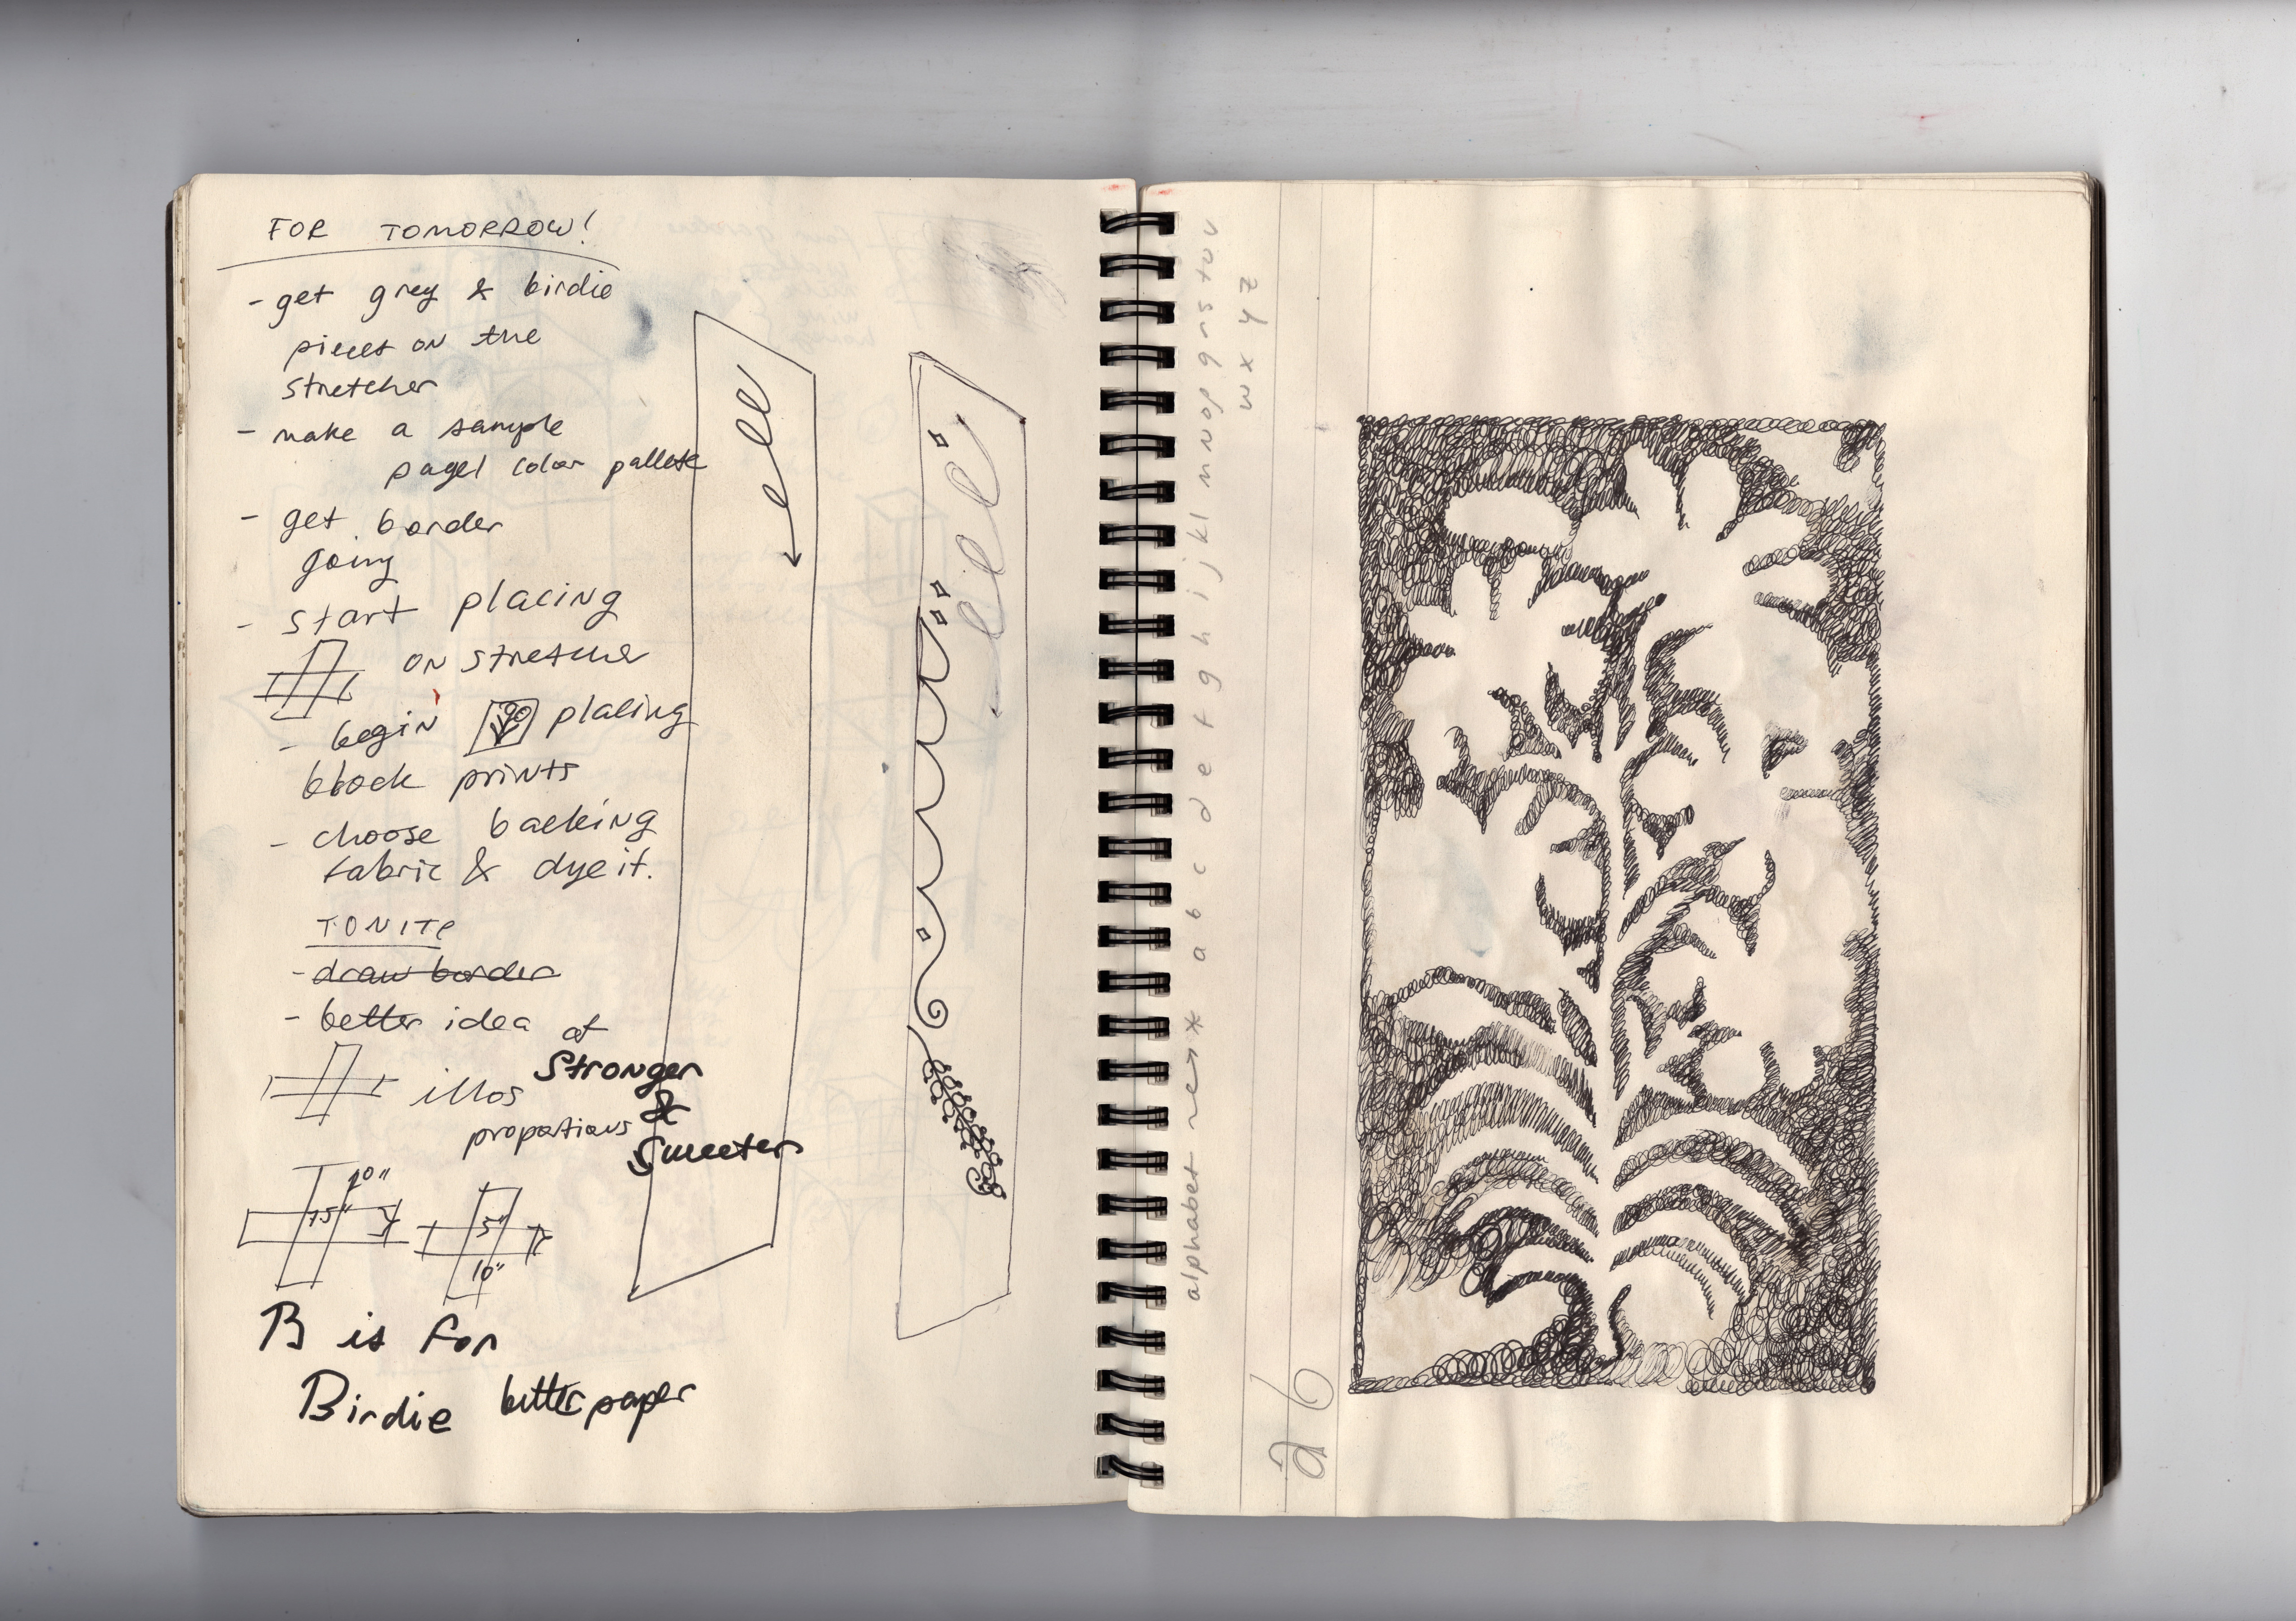 FOR TOMORROW!
- get grey & birdie
pieces on the
stretcher
- make a sample
page/ color pallete
- get border
going
- start placing
on stretcher
- begin placing
block prints
- choose backing
fabric & dye it.
TONITE
- draw border
- better idea of
illos
proportions
Stronger
&
Sweeter
10"
15"
5"
10"
B is for
Birdie better paper
alphabet a b c d e f g h i j k l m n o p q r s t u v
w x y z
a b